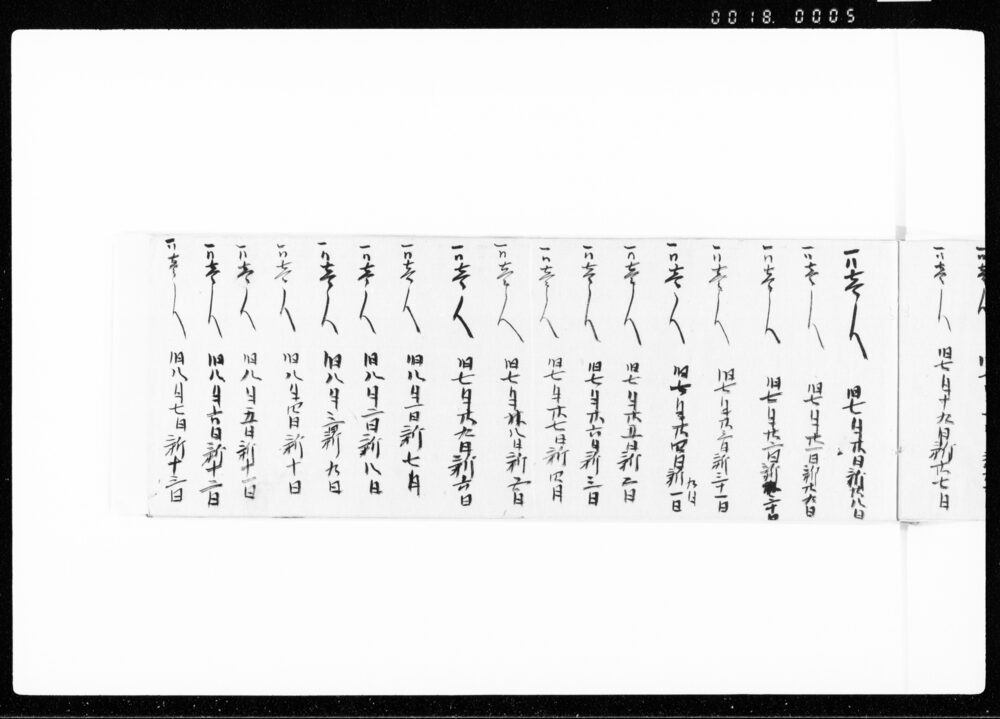 0018. 0005
一ハ壱人 旧七月十九日新廿七日
一ハ壱人 旧七月廿日新廿八日
一ハ壱人 旧七月廿一日新廿九日
一ハ壱人 旧七月廿二日新三十日
一ハ壱人 旧七月廿三日新三十一日
一ハ壱人 旧七月廿四日新九月一日
一ハ壱人 旧七月廿五日新二日
一ハ壱人 旧七月廿六日新三日
一ハ壱人 旧七月廿七日新四日
一ハ壱人 旧七月廿八日新五日
一ハ壱人 旧七月廿九日新六日
一ハ壱人 旧八月一日新七日
一ハ壱人 旧八月二日新八日
一ハ壱人 旧八月三日新九日
一ハ壱人 旧八月四日新十日
一ハ壱人 旧八月五日新十一日
一ハ壱人 旧八月六日新十二日
一ハ壱人 旧八月七日新十三日